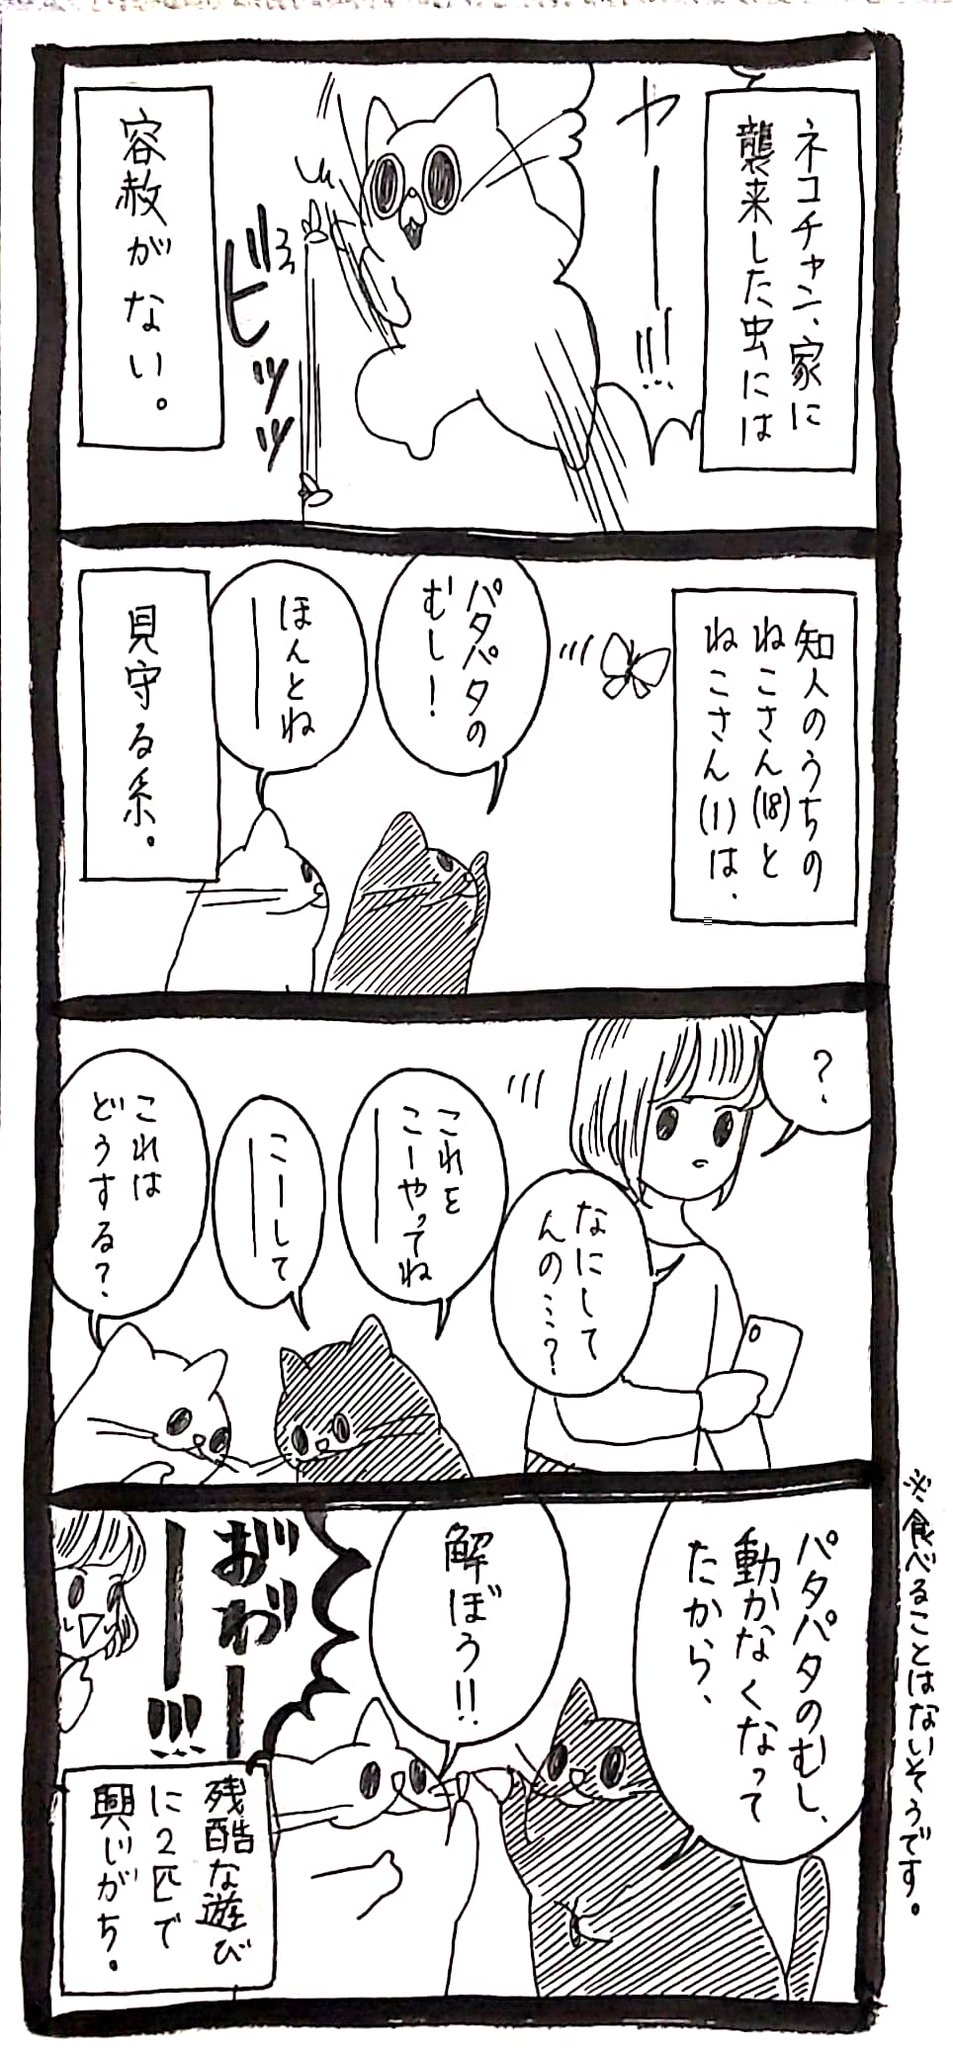 ネコチャン、家に
襲来した虫には
ヤー!!!
ビッッ
容赦がない。
知人のうちの
ねこさん(18)と
ねこさん(1)は、
パタパタの
むし!
ほんとね
ー
見守る系。
?
なにして
んの…?
これを
こーやってね
ー
こーして
ー
これは
どうする?
パタパタのむし、
動かなくなって
たから、
解ぼう!!
おわー
ー!!!
残酷な遊び
に2匹で
興じがち。
※食べることはないそうです。